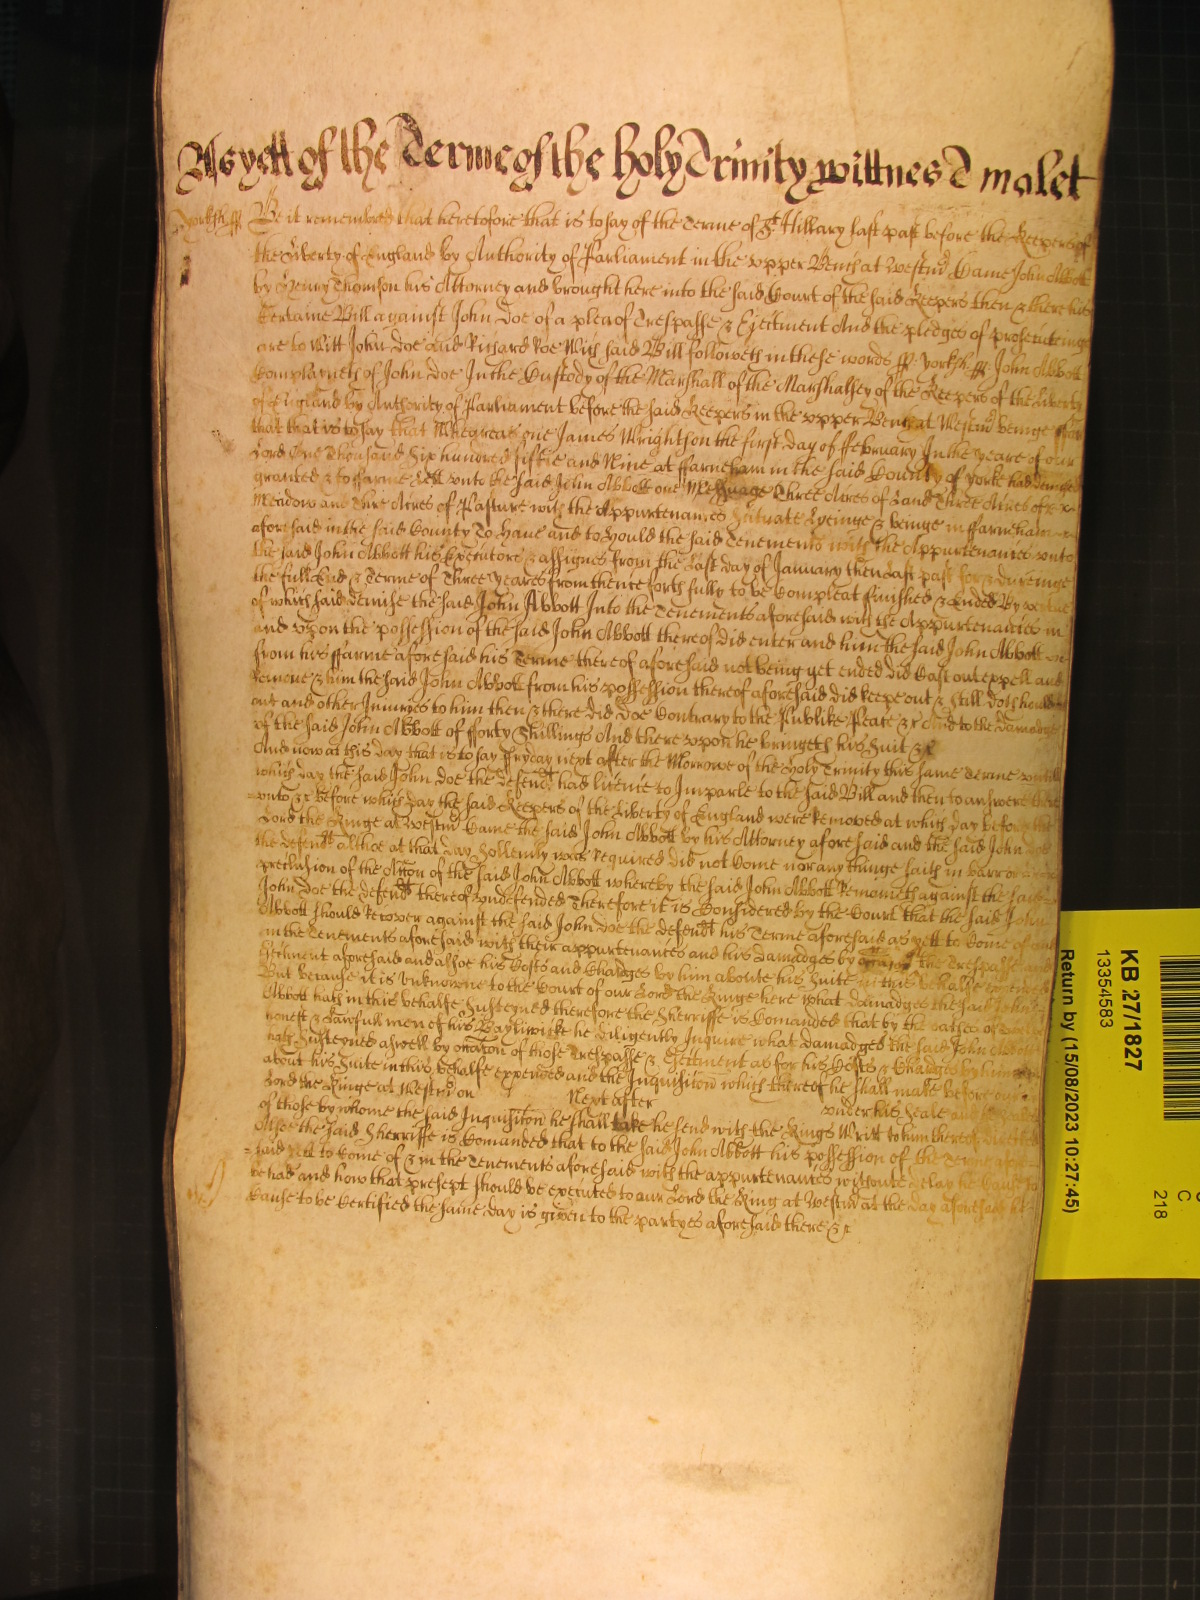 As yett of the Terme of the holy Trinity wittnes T malet
yorksh ss Be it remembred that heretofore that is to say of the Terme of St Hillary last past before the Keepers of
the Liberty of England by Authority of Parliament in the upper Bench at Westmr Came John Abbott
by Henry Thomson his Attorney and brought here into the said Court of the said Keepers then & there his
Certaine Bill against John Doe of a plea of Trespasse & Ejectment And the pledges of prosecuteinge
are to Witt John Doe and Richard Roe Wich said Bill followeth in these words ss. yorksh. ss. John Abbott
Complayneth of John Doe In the Custody of the Marshall of the Marshalsey of the Keepers of the Liberty
of England by Authority of Parliament before the said Keepers in the upper Bench at Westmr beinge ffor
that that is to say that Whereas one James Wrightson the first day of ffebruary In the yeare of our
Lord One Thousand Six hundred fiftie and Nine at ffarneham in the said County of yorke had demised
granted & to ffarme Lett unto the said John Abbott one Messuage Three Acres of Land Three Acres of
Meadow and Three Acres of Pasture with the Appurtenances Scituate Lyeinge & beinge in ffarneham
aforesaid in the said County To Have and to Hould the said Tenements with the Appurtenances unto
the said John Abbott his Executors & assignes from the Last day of January then Last past for & dureinge
the full End & Terme of Three Yeares from thenceforth fully to be Compleat ffinished & Ended By vertue
of which said demise the said John Abbott Into the Tenements aforesaid with the Appurtenances in
and upon the possession of the said John Abbott thereof did enter and him the said John Abbott
from his ffarme aforesaid his Terme thereof aforesaid not being yet ended did Cast out expell and
remove & him the said John Abbott from his possession thereof aforesaid did keepe out & still doth hould
out and other Injuryes to him then & there did doe Contrary to the Publike Peace &c And to the Damadge
of the said John Abbott of fforty Shillings And thereupon he bringeth his Suit &c
And now at this day that is to say ffryday next after the Morrowe of the Holy Trinity this same Terme untill
which day the said John Doe the defendt had licence to Imparle to the said Bill and then to answere
unto &c before which day the said Keepers of the Liberty of England were Removed at which day before the
Lord the Kinge at Westmr Came the said John Abbott by his Attorney aforesaid and the said John Doe
the defendt allbee at that day Sollemly was required did not Come nor any thinge saith in barr or
preclusion of the Accon of the said John Abbott whereby the said John Abbott Remaineth against the said
John Doe the defendt thereof undefended Therefore it is Considered by the Court that the said John
Abbott should Recover against the said John Doe the defendt his Terme aforesaid as yett to Come of and
in the Tenements aforesaid with their appurtenances and his damadges by the Trespasse and
Ejectment aforesaid and alsoe his Costs and Chardges by him aboute his Suite in this behalfe expended
But because it is Unknowne to the Court of our Lord the Kinge here what damadges the said John
Abbott hath in this behalfe Susteyned therefore the Sherriffe is Comanded that by the oathes of
honest & Lawfull men of his Baylywicke he diligently Inquire what damadges the said John Abbott
hath Susteyned aswell by occation of those Trespasse & Ejectment as for his Costs & Chardges by him
about his Suite in this behalfe expended and the Inquisicon which thereof he shall make before our
Lord the Kinge at Westmr on Next after under his Seale
of those by whome the said Inquisicon he shall take he send with the Kings Writt to him thereof directed
Alsoe the said Sherriffe is Comanded that to the said John Abbott his possession of the Terme afore
said yett to Come of & in the Tenements aforesaid with the appurtenances without delay he Cause to
be had and how that precept should be executed to our Lord the King at Westmr at the day aforesaid he
Cause to be Certified the same day is given to the partyes aforesaid there &c
KB 27/1827
13354583
Return by (15/08/2023 10:27:45)
C
218